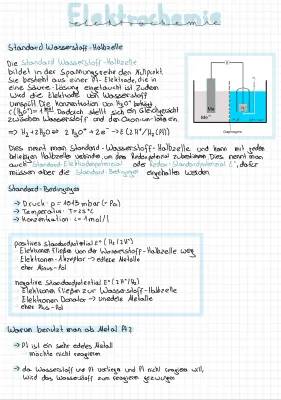 Elektrochemie
elektrochemie
Standard Wasserstoff-Halbzelle
Die Standard Wasserstoff-Halbzelle
bildet in der Spannungsreihe den Nullpunkt.
Sie besteht aus einer Pt-Elektrode, die in
eine Säure-Lösung eingetaucht ist. Zudem
wird die Elektrode von Wasserstoff
umspült. Die Konzentration von H3O+ beträgt
Dadurch stellt sich ein Gleichgewicht
zwischen Wasserstoff und den Oxonium-Ionen ein.
=> H2 + 2H2O ⇌ 2 H3O+ + 2e- -> E (2H+/H2 (Pt))
Dies nennt man Standard-Wasserstoff-Halbzelle und kann mit jeder
beliebigen Halbzelle verbinden, um das Redoxpotenzial zu bestimmen. Dies nennt man
auch Standard-Elektrodenpotenzial oder Redox-Standardpotenzial E°, dafür
müssen aber die Standard-Bedingungen eingehalten werden.
Standard-Bedingungen
-> Druck: p = 1013 mbar
-> Temperatur: T = 25°C
-> Konzentration: c = 1 mol/l
positives Standardpotential E°
Elektronen fließen von der Wasserstoff-Halbzelle weg
Elektronen-Akzeptor -> edlere Metalle
eher Minus-Pol
negative Standardpotential E°
Elektronen fließen zur Wasserstoff-Halbzelle
Elektronen Donator -> unedele Metalle
eher Plus-Pol
Warum benutzt man als Metall Pt?
-> Pt ist ein sehr edeles Metall
möchte nicht reagieren
-> da Wasserstoff vor Pt vorliegt und Pt nicht reagieren will,
wird das Wasserstoff zum reagieren gezwungen